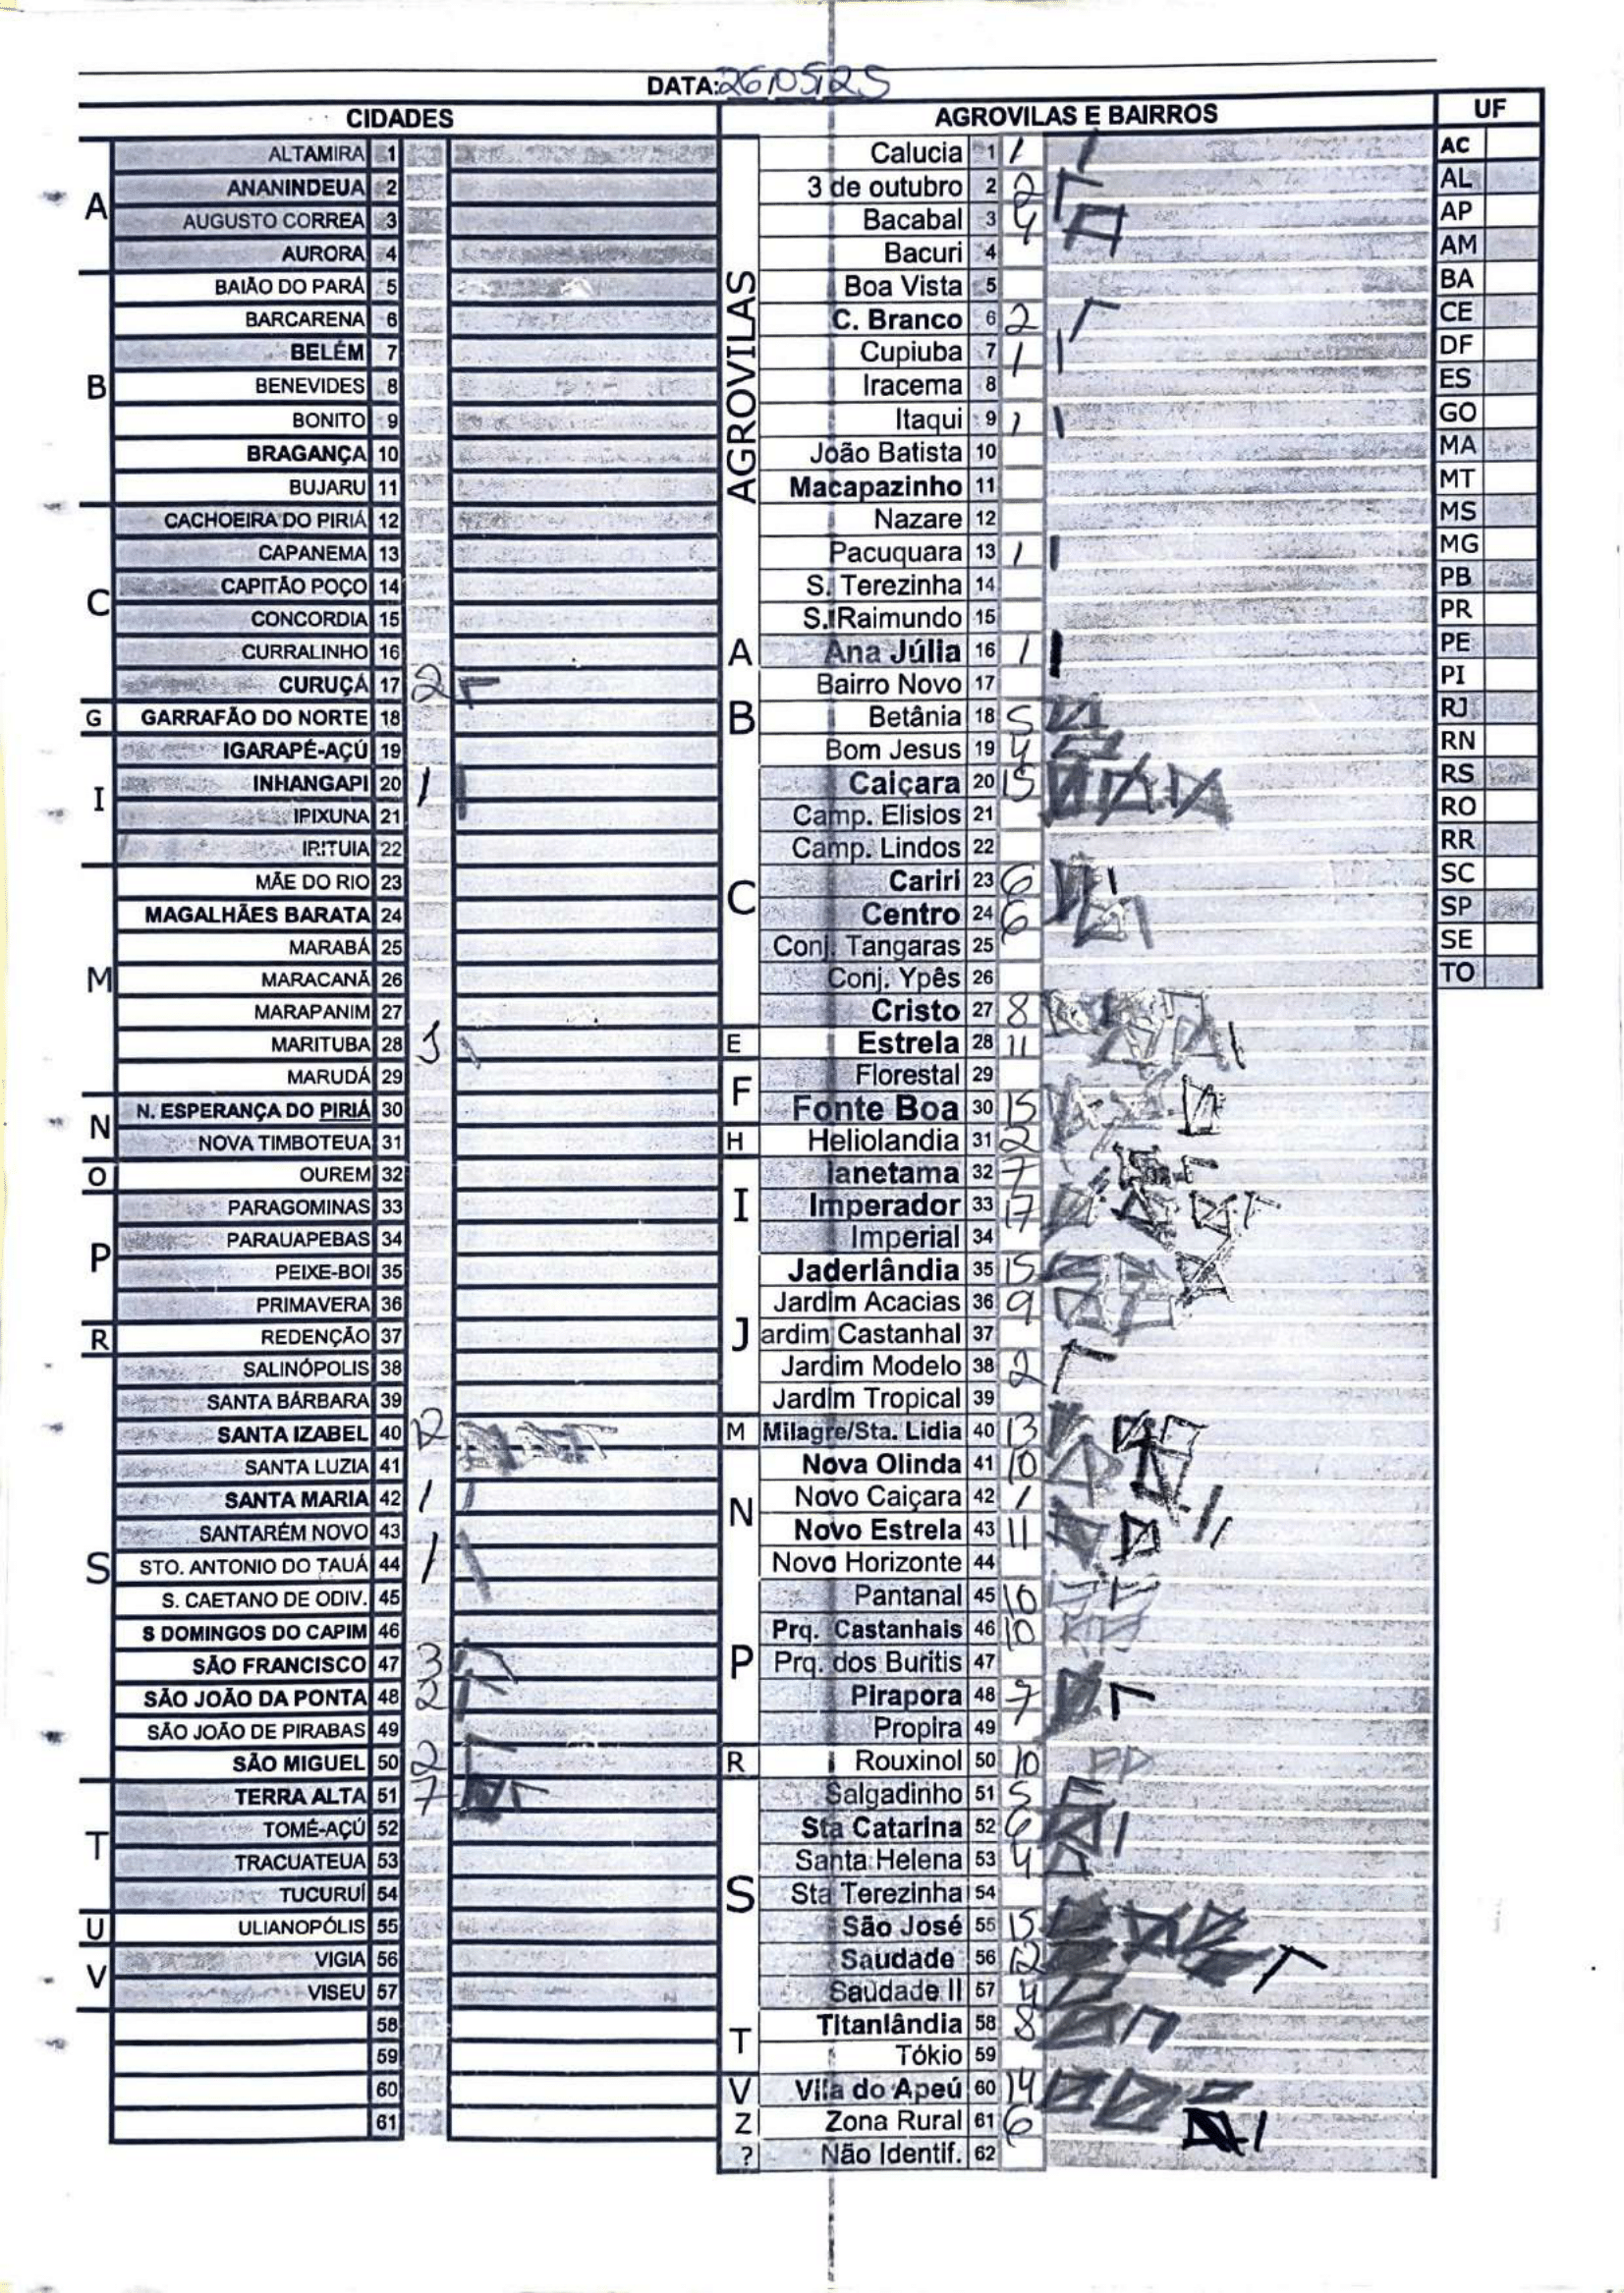 DATA: 26/05/25
CIDADES
A
ALTAMIRA 1
ANANINDEUA 2
AUGUSTO CORREA 3
AURORA 4
B
BAIÃO DO PARÁ 5
BARCARENA 6
BELÉM 7
BENEVIDES 8
BONITO 9
BRAGANÇA 10
BUJARU 11
C
CACHOEIRA DO PIRIÁ 12
CAPANEMA 13
CAPITÃO POÇO 14
CONCORDIA 15
CURRALINHO 16
CURUÇÁ 17 2
G
GARRAFÃO DO NORTE 18
I
IGARAPÉ-AÇÚ 19
INHANGAPI 20 1
IPIXUNA 21
IRITUIA 22
M
MÃE DO RIO 23
MAGALHÃES BARATA 24
MARABÁ 25
MARACANÃ 26
MARAPANIM 27
MARITUBA 28 1
MARUDÁ 29
N
N. ESPERANÇA DO PIRIÁ 30
NOVA TIMBOTEUA 31
O
OUREM 32
P
PARAGOMINAS 33
PARAUAPEBAS 34
PEIXE-BOI 35
PRIMAVERA 36
R
REDENÇÃO 37
S
SALINÓPOLIS 38
SANTA BÁRBARA 39
SANTA IZABEL 40 12
SANTA LUZIA 41
SANTA MARIA 42 1
SANTARÉM NOVO 43
STO. ANTONIO DO TAUÁ 44 1
S. CAETANO DE ODIV. 45
S DOMINGOS DO CAPIM 46
SÃO FRANCISCO 47 3
SÃO JOÃO DA PONTA 48 2
SÃO JOÃO DE PIRABAS 49
SÃO MIGUEL 50 2
T
TERRA ALTA 51 7
TOMÉ-AÇÚ 52
TRACUATEUA 53
TUCURUÍ 54
U
ULIANOPÓLIS 55
V
VIGIA 56
VISEU 57
58
59
60
61
AGROVILAS E BAIRROS
AGROVILAS
Calucia 1 1
3 de outubro 2 2
Bacabal 3 4
Bacuri 4
Boa Vista 5
C. Branco 6 2
Cupiuba 7 1
Iracema 8
Itaqui 9 1
João Batista 10
Macapazinho 11
Nazare 12
Pacuquara 13 1
S. Terezinha 14
S. Raimundo 15
A
Ana Júlia 16 1
Bairro Novo 17
B
Betânia 18 5
Bom Jesus 19 4
C
Caiçara 20 15
Camp. Elisios 21
Camp. Lindos 22
Cariri 23 6
Centro 24 6
Conj. Tangaras 25
Conj. Ypês 26
Cristo 27 8
E
Estrela 28 11
F
Florestal 29
Fonte Boa 30 15
H
Heliolandia 31 2
I
Ianetama 32 7
Imperador 33 17
Imperial 34
J
Jaderlândia 35 15
Jardim Acacias 36 9
ardim Castanhal 37
Jardim Modelo 38 2
Jardim Tropical 39
M
Milagre/Sta. Lidia 40 13
N
Nova Olinda 41 10
Novo Caiçara 42 1
Novo Estrela 43 11
Novo Horizonte 44
P
Pantanal 45 10
Prq. Castanhais 46 10
Prq. dos Buritis 47
Pirapora 48 7
Propira 49
R
Rouxinol 50 10
S
Salgadinho 51 5
Sta Catarina 52 6
Santa Helena 53 4
Sta Terezinha 54
São José 55 15
Saudade 56 12
Saudade II 57 4
T
Titanlândia 58 8
Tókio 59
V
Vila do Apeú 60 14
Z
Zona Rural 61 6
?
Não Identif. 62
UF
AC
AL
AP
AM
BA
CE
DF
ES
GO
MA
MT
MS
MG
PB
PR
PE
PI
RJ
RN
RS
RO
RR
SC
SP
SE
TO